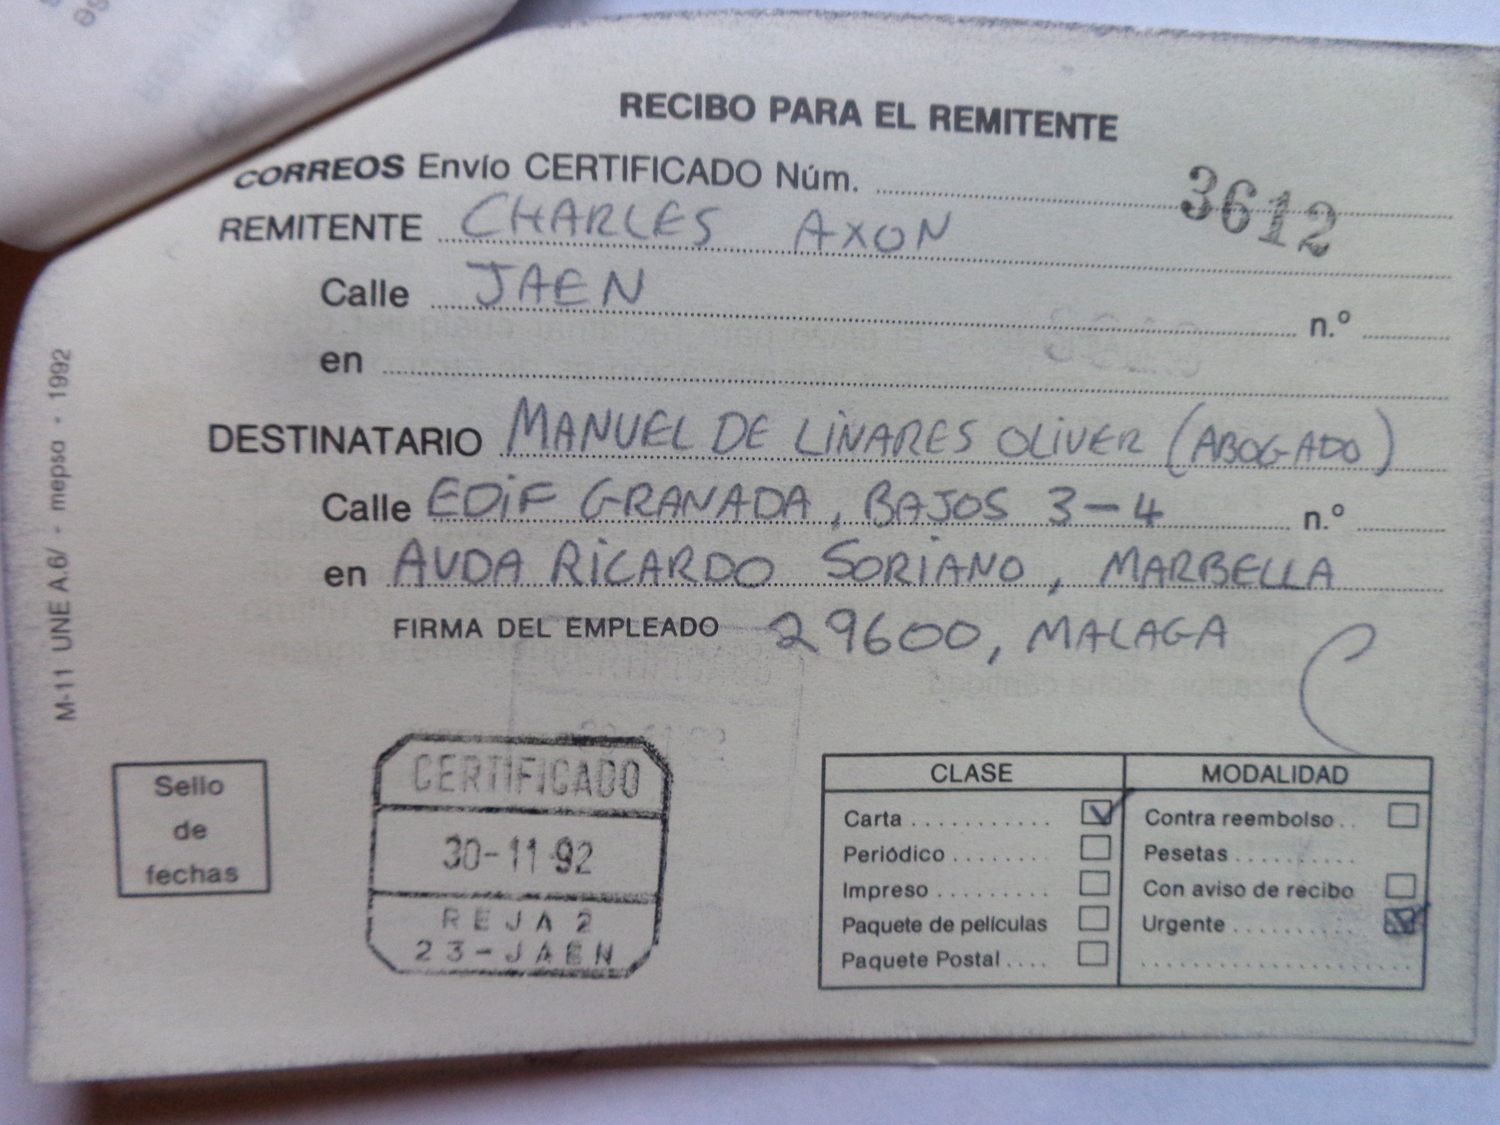 RECIBO PARA EL REMITENTE
CORREOS Envío CERTIFICADO Núm. 3612
REMITENTE CHARLES AXON
Calle JAEN n.º
en
DESTINATARIO MANUEL DE LINARES OLIVER (ABOGADO)
Calle EDIF GRANADA, BAJOS 3-4 n.º
en AVDA RICARDO SORIANO, MARBELLA
FIRMA DEL EMPLEADO 29600, MALAGA
M-11 UNE A 6/ - mepsa - 1992
Sello
de
fechas
CERTIFICADO
30-11-92
REJA 2
23-JAEN
CLASE MODALIDAD
Carta Contra reembolso
Periódico Pesetas
Impreso Con aviso de recibo
Paquete de películas Urgente
Paquete Postal